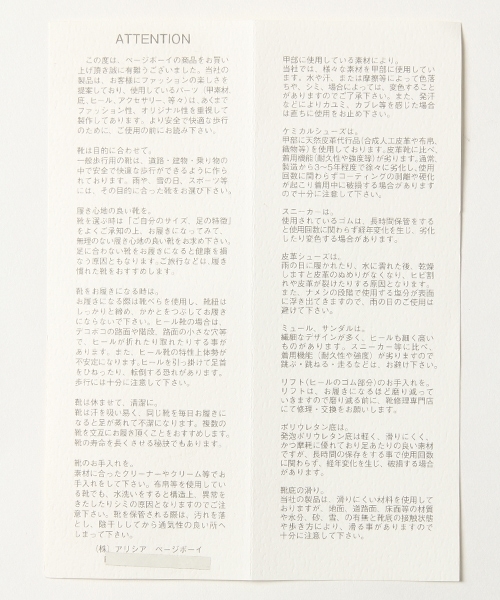 ATTENTION
この度は、ページボーイの商品をお買い
上げ頂き誠に有難うございました。当社の
製品は、お客様にファッションの楽しさを
提案しており、使用しているパーツ(甲素材、
底、ヒール、アクセサリー、等々)は、あくまで
ファッション性、オリジナル性を重視して
製作しております。より安全で快適な歩行
のために、ご使用の前にお読み下さい。
靴は目的に合わせて。
一般歩行用の靴は、道路・建物・乗り物の
中で安全で快適な歩行ができるように作ら
れております。雨や、雪の日、スポーツ等
には、その目的に合った靴をお選び下さい。
履き心地の良い靴を。
靴を選ぶ時は「ご自分のサイズ、足の特徴」
をよくご承知の上、お履きになってみて、
無理のない履き心地の良い靴をお求め下さい。
足に合わない靴をお履きになると健康を損
なう原因ともなります。ご旅行などは、履き
慣れた靴をおすすめします。
靴をお履きになる時は。
お履きになる際は靴べらを使用し、靴紐は
しっかりと締め、かかとをつぶしてお履き
にならないで下さい。ヒール靴の場合は、
デコボコの路面や階段、路面の小さな穴等
で、ヒールが折れたり取れたりする事が
あります。また、ヒール靴の特性上体勢が
不安定になります。ヒールを引っ掛けて足首
をひねったり、転倒する恐れがあります。
歩行には十分に注意して下さい。
靴は休ませて、清潔に。
靴は汗を吸い易く、同じ靴を毎日お履きに
なると足が蒸れて不潔になります。複数の
靴を交互にお履き頂くことをおすすめします。
靴の寿命を長くさせる秘訣でもあります。
靴のお手入れを。
素材に合ったクリーナーやクリーム等でお
手入れをして下さい。布帛等を使用してい
る靴でも、水洗いをすると構造上、異常を
きたしたりシミの原因となりますのでご注
意下さい。靴を保管される際は、汚れを落
とし、陰干ししてから通気性の良い所へ
しまって下さい。
(株) アリシア ページボーイ
甲部に使用している素材により。
当社では、様々な素材を甲部に使用してい
ます。水や汗、または摩擦等によって色落
ちや、シミ、場合によっては、変色すること
がありますのでご了承下さい。また、金具
などによりカユミ、カブレ等を感じた場合
は直ちに使用をお止め下さい。
ケミカルシューズは。
甲部に天然皮革代行品(合成人工皮革や布帛、
織物等)を使用しております。皮革靴に比べ
着用機能(耐久性や強度等)が劣ります。通常、
製造から3〜5年程度で徐々に劣化し、使用
回数に関わらずコーティングの剥離や硬化
が起こり着用中に破損する場合があります
ので十分に注意して下さい。
スニーカーは。
使用されているゴムは、長時間保管をする
と使用回数に関わらず経年変化を生じ、劣化
したり変色する場合があります。
皮革シューズは。
雨の日に履かれたり、水に濡れた後、乾燥
しますと皮革のぬめりがなくなり、ヒビ割
れや皮革が裂けたりする原因となります。
また、ナメシの段階で使用する塩分が表面
に浮き出てきますので、雨の日のご使用は
避けて下さい。
ミュール、サンダルは。
繊細なデザインが多く、ヒールも細く高い
ものがあります。スニーカー等に比べ、
着用機能(耐久性や強度)が劣りますので
跳ぶ・跳ねる・走るなどは、お避け下さい。
リフト(ヒールのゴム部分)のお手入れを。
リフトは、お履きになるほど磨り減って
いきますので磨り減る前に、靴修理専門店
にて修理・交換をお願いします。
ポリウレタン底は。
発泡ポリウレタン底は軽く、滑りにくく、
かつ摩耗に優れており足あたりの良い素材
ですが、長時間の保存をする事で使用回数
に関わらず、経年変化を生じ、破損する場合
があります。
靴底の滑り。
当社の製品は、滑りにくい材料を使用して
おりますが、地面、道路面、床面等の材質
や水分、砂、雪、の有無と靴底の接触状態
や歩き方により、滑る事がありますので
十分に注意して下さい。